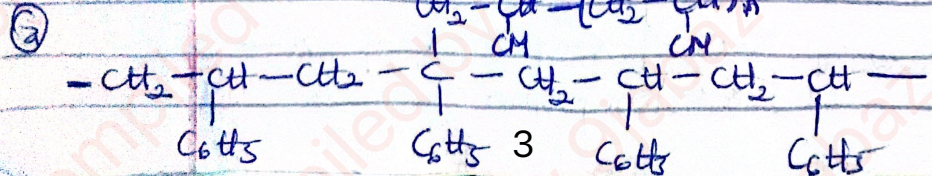 a
CH2 - CH - (CH2 - CH)n
CN CN
- CH2 - CH - CH2 - C - CH2 - CH - CH2 - CH -
C6H5 C6H5 3 C6H5 C6H5